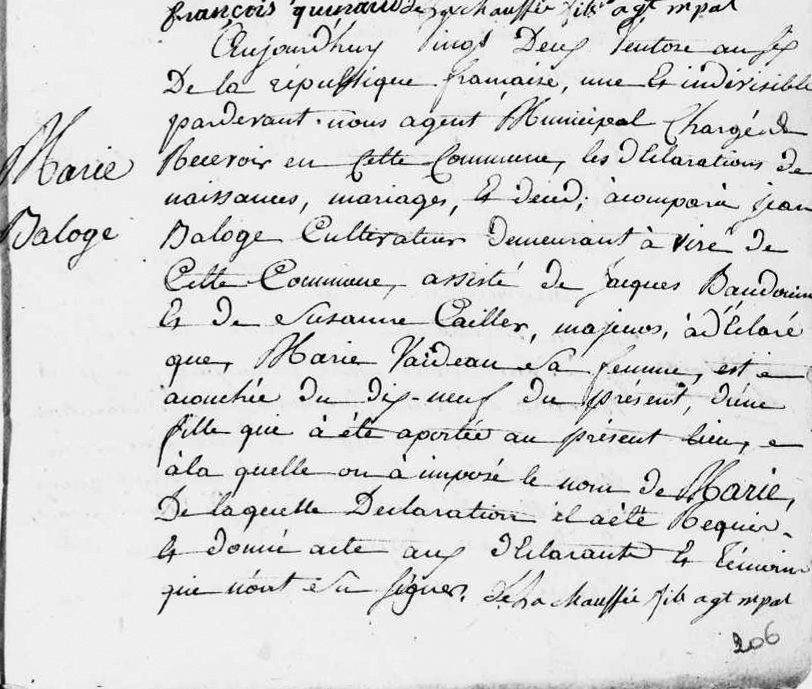 françois de Lachauffée fils agt mpal
Aujourdhuy Vingt Deux Ventose an six
De la république française, une Et indivisible
pardevant nous agent Municipal Chargé de
Recevoir en Cette Commune, les déclarations de
naissances, mariages, Et deced; à comparu jean
Marie
Baloge Cultivateur demeurant à viré de
Baloge
Cette Commune, assisté de jacques Baudouin
Et de Susanne Cailler, majeurs, à déclaré
que, Marie Vaideau sa femme, est e
acouchée du dix-neuf du présent, d'une
fille que à été aportée au présent lieu, e
à la quelle on à imposé le nom de Marie,
De laquelle Declaration il a été Requis
Et donné acte aux déclarants Et témoins
que n'ont su signer. de Lachauffée fils agt mpal
206